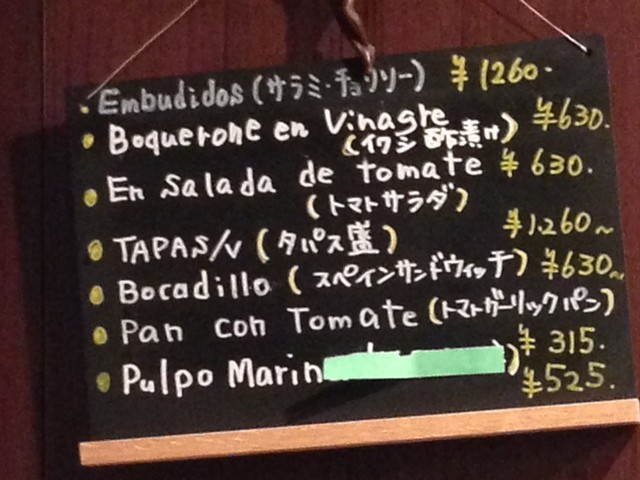 Embudidos (サラミ・チョリソー) ¥1260.
Boquerone en Vinagre ¥630.
(イワシ酢漬け)
En Salada de tomate ¥630.
(トマトサラダ)
¥1,260~
TAPAS/V (タパス盛)
Bocadillo (スペインサンドウィッチ) ¥630~
Pan con Tomate (トマトガーリックパン)
¥315.
Pulpo Marin )
¥525.